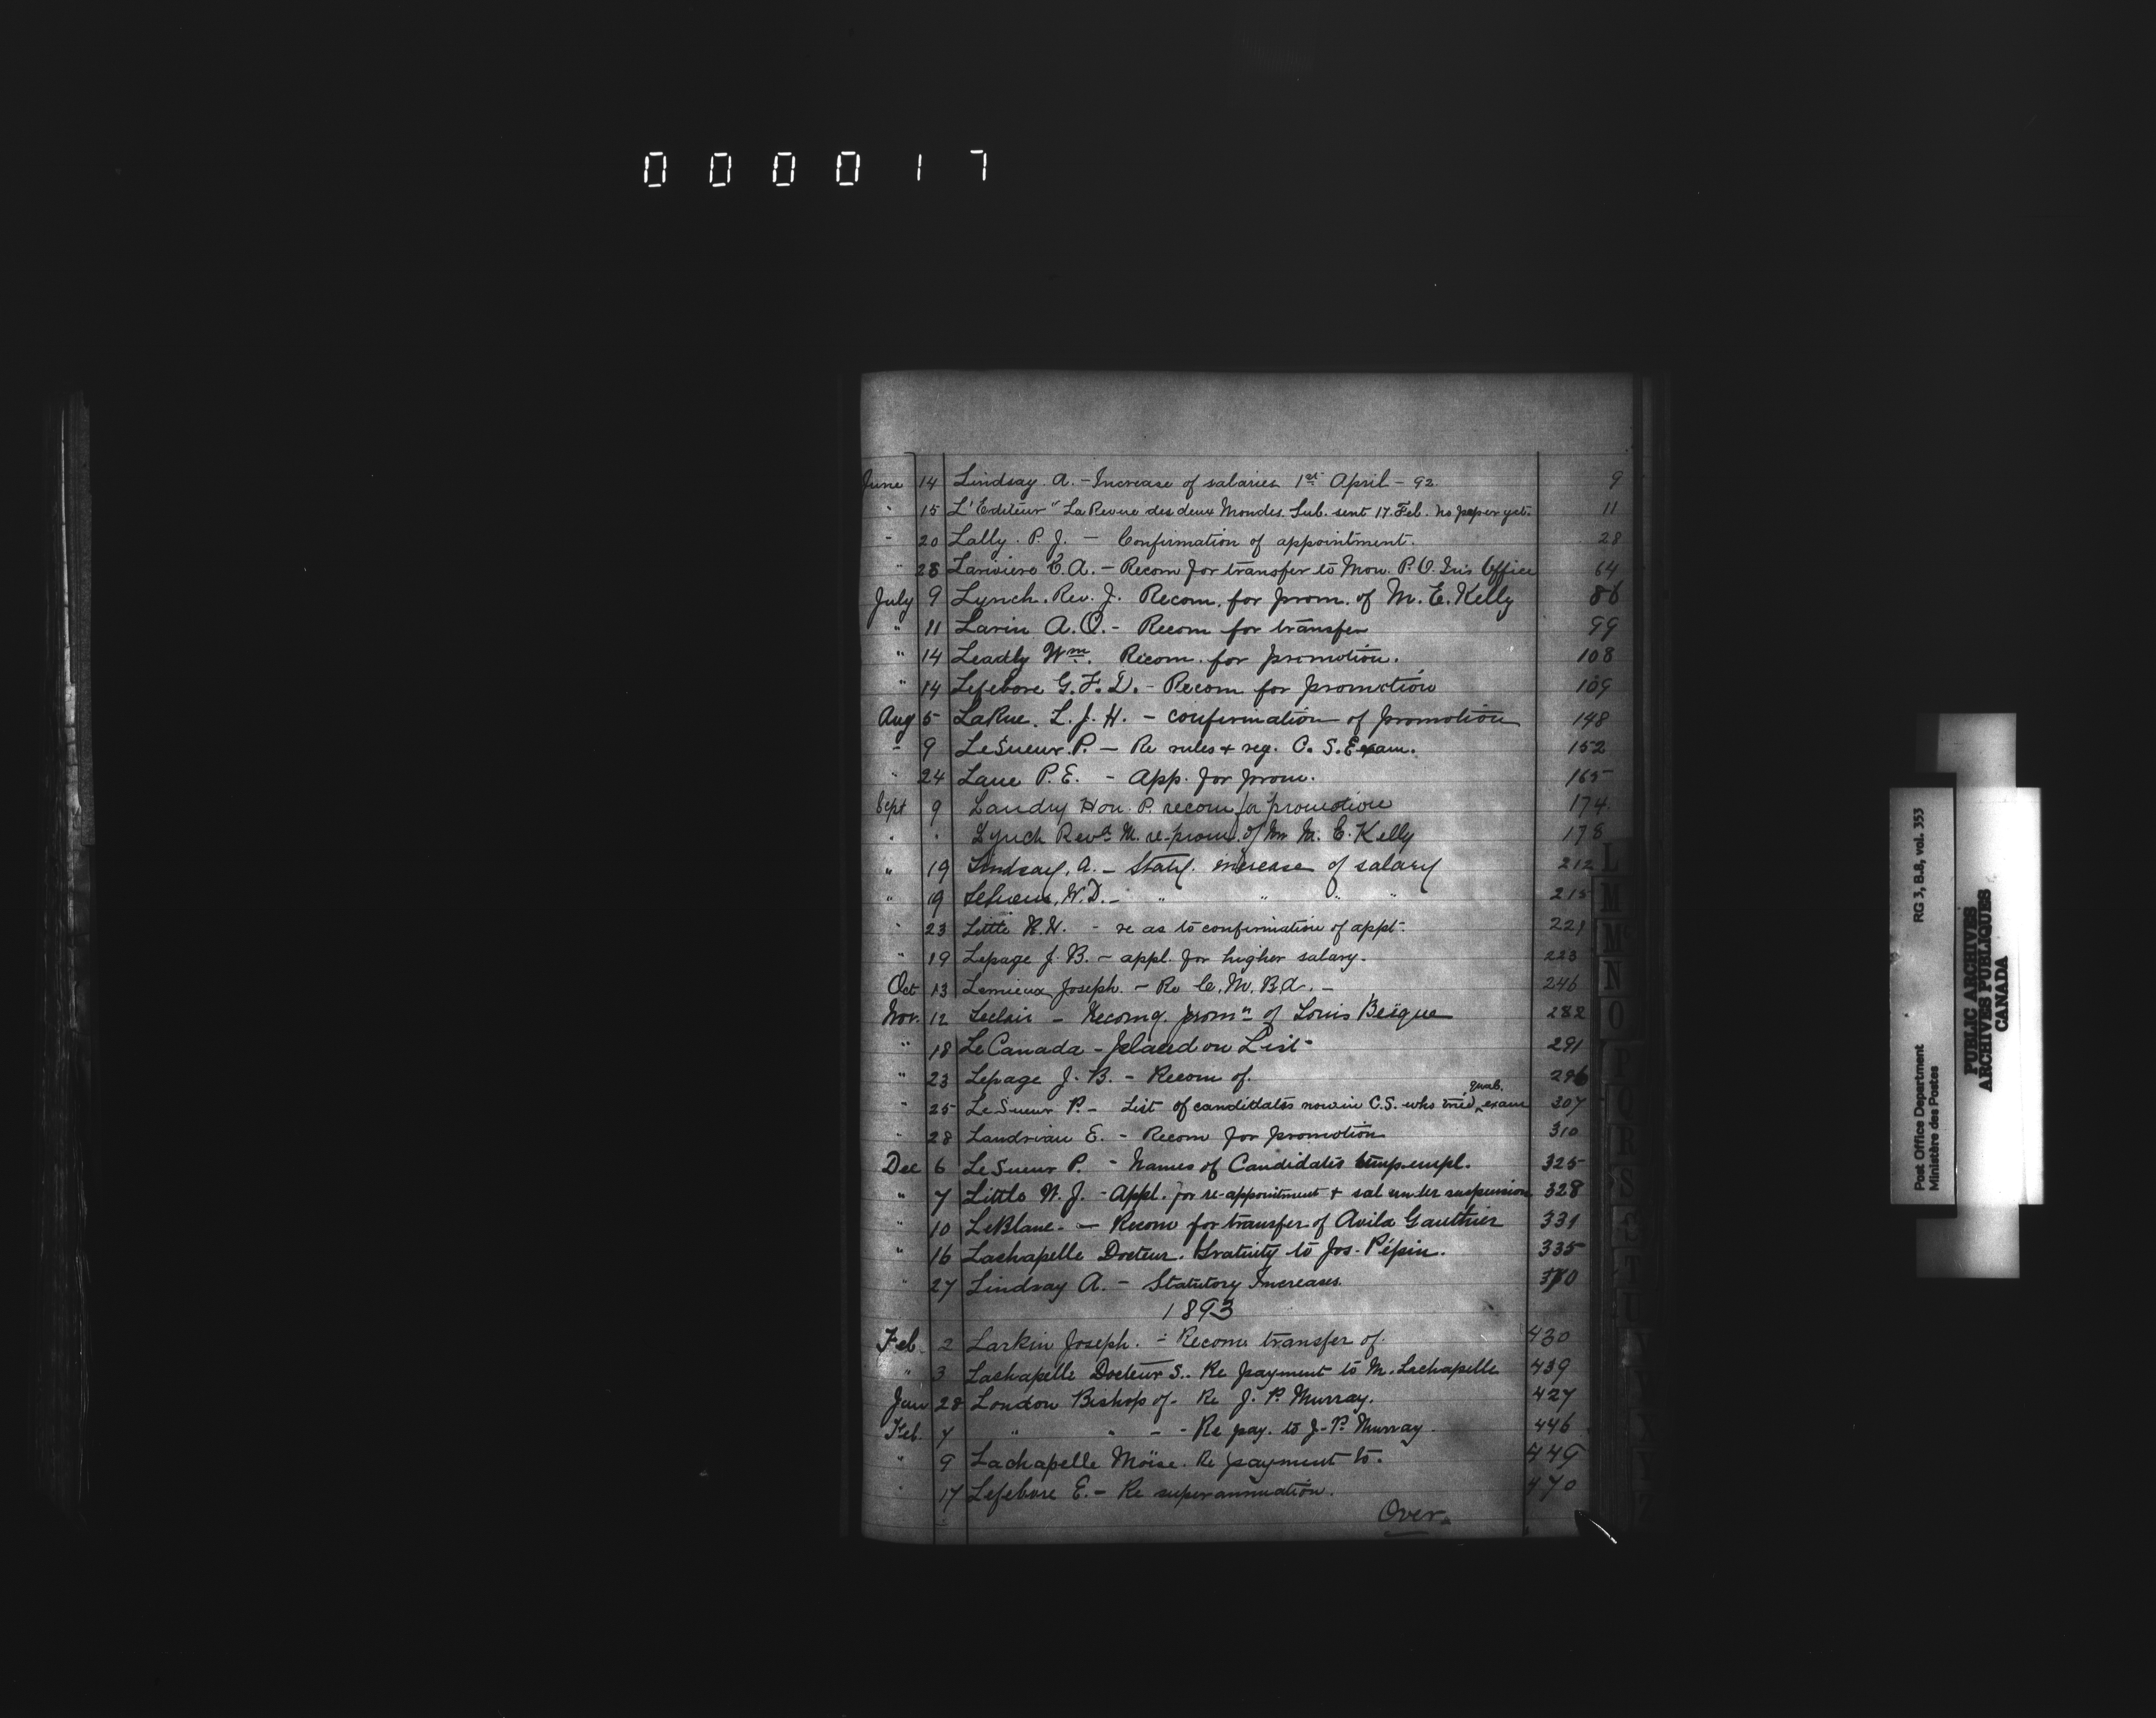 000017
June 14 Lindsay. A. - Increase of salaries 1st April - 92. 9
" 15 L'Editeur "La Revue des deux Mondes. Sub. sent 17. Feb. no paper yet. 11
" 20 Lally. P. J. - Confirmation of appointment. 28
" 28 Lariviere C. A. - Recom for transfer to Mon. P.O. Ins Office 64
July 9 Lynch. Rev. J. Recom. for prom. of M. E. Kelly 86
" 11 Lavin A. O. - Recom for transfer 99
" 14 Leadly Wm. Recom. for promotion. 108
" 14 Lefebvre G. F. D. - Recom for promotion 109
Aug 5 LaRue. L. J. H. - confirmation of promotion 148
" 9 LeSueur. P. - Re rules + reg. C. S. Exam. 152
" 24 Lane P. E. - App. for prom. 165
Sept 9 Landry Hon. P. recom for promotion 174
" " Lynch Revd. M. re-prom. of Mr M. E. Kelly 178
" 19 Lindsay, A. - Staty. increase of salary 212
" 19 LeSueur, W. D. - " " " " 215
" 23 Little - re as to confirmation of appt. 221
" 19 Lepage J. B. - appl. for higher salary. 223
Oct 13 Lemieux Joseph. - Re C. M. B. A. - 246
Nov. 12 Leclair - Recomg. promn of Louis Beïque 282
" 18 Le Canada - placed on List 291
" 23 Lepage J. B. - Recom of. 296
" 25 LeSueur P. - List of candidates now in C.S. who tried qual. exam 307
" 28 Landriau E. - Recom for promotion 310
Dec 6 LeSueur P. - Names of Candidates temp. empl. 325
" 7 Little N. J. - Appl. for re-appointment + sal under suspension 328
" 10 LeBlanc - Recom for transfer of Avila Gauthier 331
" 16 Lachapelle Docteur. Gratuity to Jos. Pépin. 335
" 27 Lindsay A. - Statutory Increases. 370
1893
Feb. 2 Larkin Joseph. - Recom transfer of. 430
" 3 Lachapelle Docteur S.. Re payment to M. Lachapelle 439
Jan 28 London Bishop of - Re J. P. Murray. 427
Feb. 7 " " - - Re pay. to J. P. Murray. 446
" 9 Lachapelle Moïse. Re payment to. 449
" 17 Lefebvre E. - Re superannuation. 470
Over
L
M
Mc
N
O
P
Q
R
S
T
RG 3, B.8, vol. 353
Post Office Department
Ministère des Postes
PUBLIC ARCHIVES
ARCHIVES PUBLIQUES
CANADA